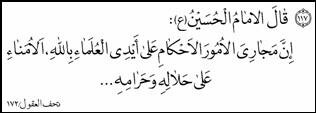 (۱۱۷) قٰالَ الامٰامُ الْحُسَيْنُ(ع):
اِنَّ مَجارِیَ الاُمُورِ الاَحْکامِ عَلیٰ اَیْدِی الْعُلَماءِ بِاللهِ، اَلاُمَناءِ
عَلیٰ حَلالِهِ وَ حَرامِهِ ...
تحف العقول، ۱۷۲